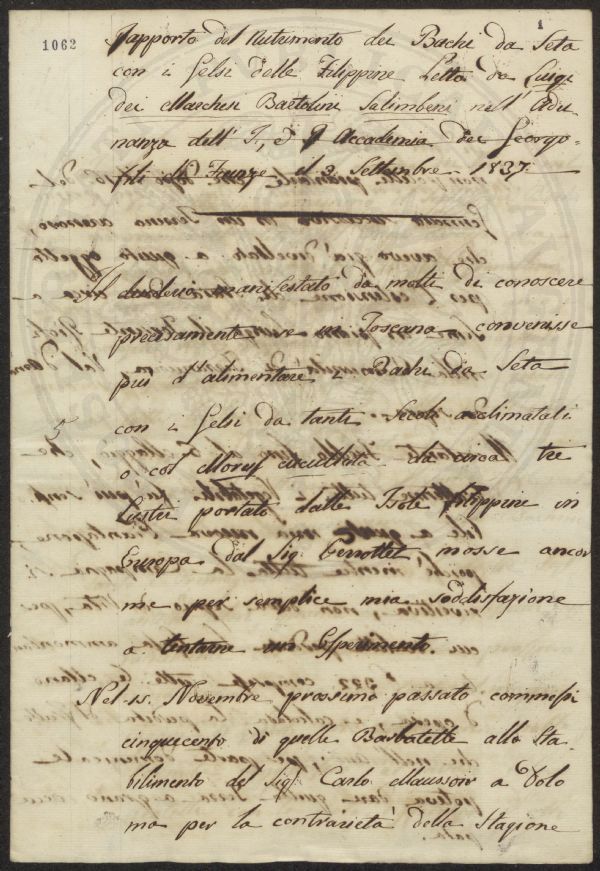 1
1062
Rapporto del Nutrimento dei Bachi da Seta
con i Gelsi delle Filippine Letto da Luigi
dei Marchesi Bartolini Salimbeni nell'Adu
nanza dell'I, e R Accademia dei Georgo-
fili di Firenze il 3 Settembre 1837.
Il desiderio manifestato da molti di conoscere
precisamente se in Toscana convenisse
più d'alimentare i Bachi da Seta
con i Gelsi da tanti Secoli acclimatati
5
o col Morus cucullata da circa tre
Lustri portato dalle Isole Filippine in
Europa dal Sig. Perrottet mosse ancor
me per semplice mia soddisfazione
a tentarne un Esperimento.
Nel 15. Novembre prossimo passato commessi
cinquecento di quelle Barbatelle allo Sta
bilimento del Sig. Carlo Maussoir a Dolo
ma per la contrarietà della Stagione